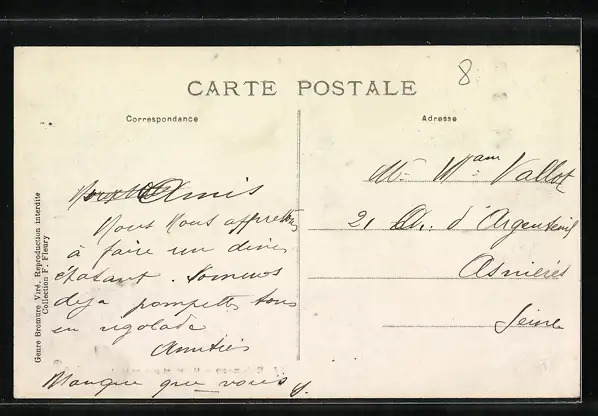 8
CARTE POSTALE
Correspondance
Adresse
Amis
Nous Nous apprettons
à faire un diner
épatant. Sommes
deja pompettes tous
en rigolade
Amitiés
Manque que vous
Mr Mam Vallot
21 Ch. d'Argenteuil
Asnières
Seine
Genre Bromure Viré. Reproduction interdite
Collection F. Fleury